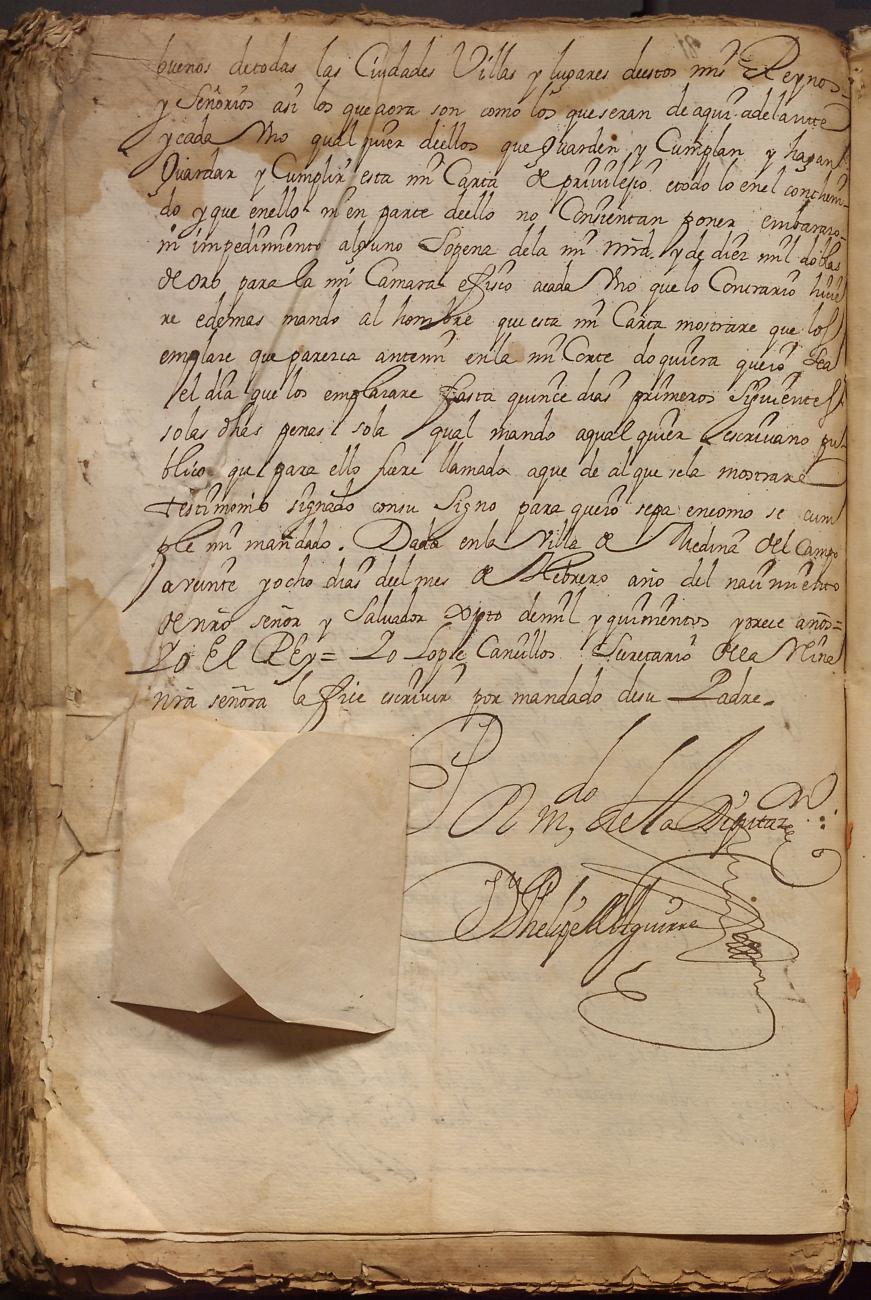 buenos de todas las Ciudades Villas y lugares deestos mis Reynos
y Señorios asi los que aora son como los que seran de aqui adelante
y cada Uno qualquier dellos que Guarden y Cumplan y hagan
Guardar y Cumplir esta mi Carta de privilegio etodo lo enel conthení
do y que enello ni en parte deello no Consientan poner embarazo
ni impedimento alguno Sopena dela mi mrd. y de diez mil doblas
de oro para la mi Camara efisco acada Uno que lo Contrario hicie
re edemas mando al hombre que esta mi Carta mostrare que los
emplace que parezca antemi enla mi Corte do quiera que io sea
el dia que los emplazare hasta quince dias primeros siguientes
so las dhas penas sola qual mando aqual quier escrivano pu
blico que para ello fuere llamado que de al que sela mostrare
testimonio signado consu signo para que io sepa encomo se cum
ple mi mandado. Dada enla Villa de Medina del Campo
a veinte y ocho dias deel mes de Febrero año del nacimiento
de nro señor y Salvador Xpto demil y quinientos y trece años=
Yo El REy= Yo Lope Canillos Secretario dela Reina
nra señora la fice escrivir por mandado desu Padre.
Phelipe Aguirre